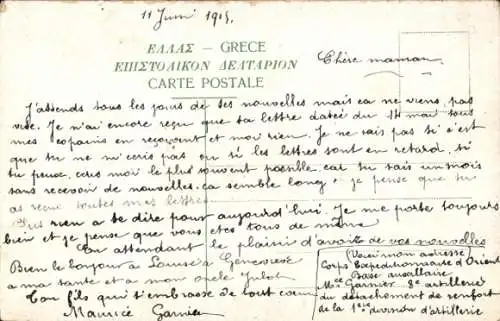 11 Juin 1915.
ΕΛΛΑΣ – GRECE
ΕΠΙΣΤΟΛΙΚΟΝ ΔΕΛΤΑΡΙΟΝ
CARTE POSTALE
Chère maman
J'attends tous les jours de tes nouvelles mais ca ne viens pas
vite. Je n'ai encore reçu que ta lettre datée du 14 mai tous
mes copains en reçoivent et moi rien. Je ne sais pas si c'est
que tu ne m'ecris pas ou si les lettres sont en retard, si
tu peux, ecris moi le plus souvent possible car tu sais un mois
sans recevoir de nouvelles ca semble long, je pense que tu
as reçue toutes mes lettres
Plus rien a te dire pour aujourd'hui. Je me porte toujours
bien et je pense que vous etes tous de même
En attendant le plaisir d'avoir de vos nouvelles
Bien le bonjour a Louise a Genevieve
a ma tante et a mon oncle Jules
Ton fils qui t'embrasse de tout coeur
Maurice Garnier
Voici mon adresse
Corps Expeditionnaire d'Orient
Base auxillaire
Mce Garnier 8e artillerie
du détachement de renfort
de la 1ere division d'artillerie